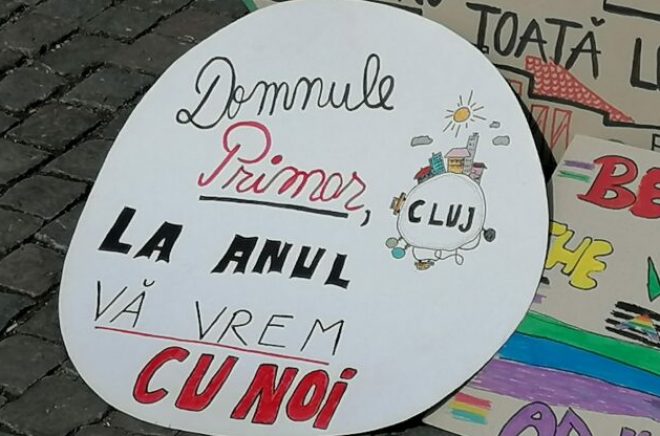 Domnule
Primar,
LA ANUL
VĂ VREM
CU NOI
CLUJ
TOATĂ
THE